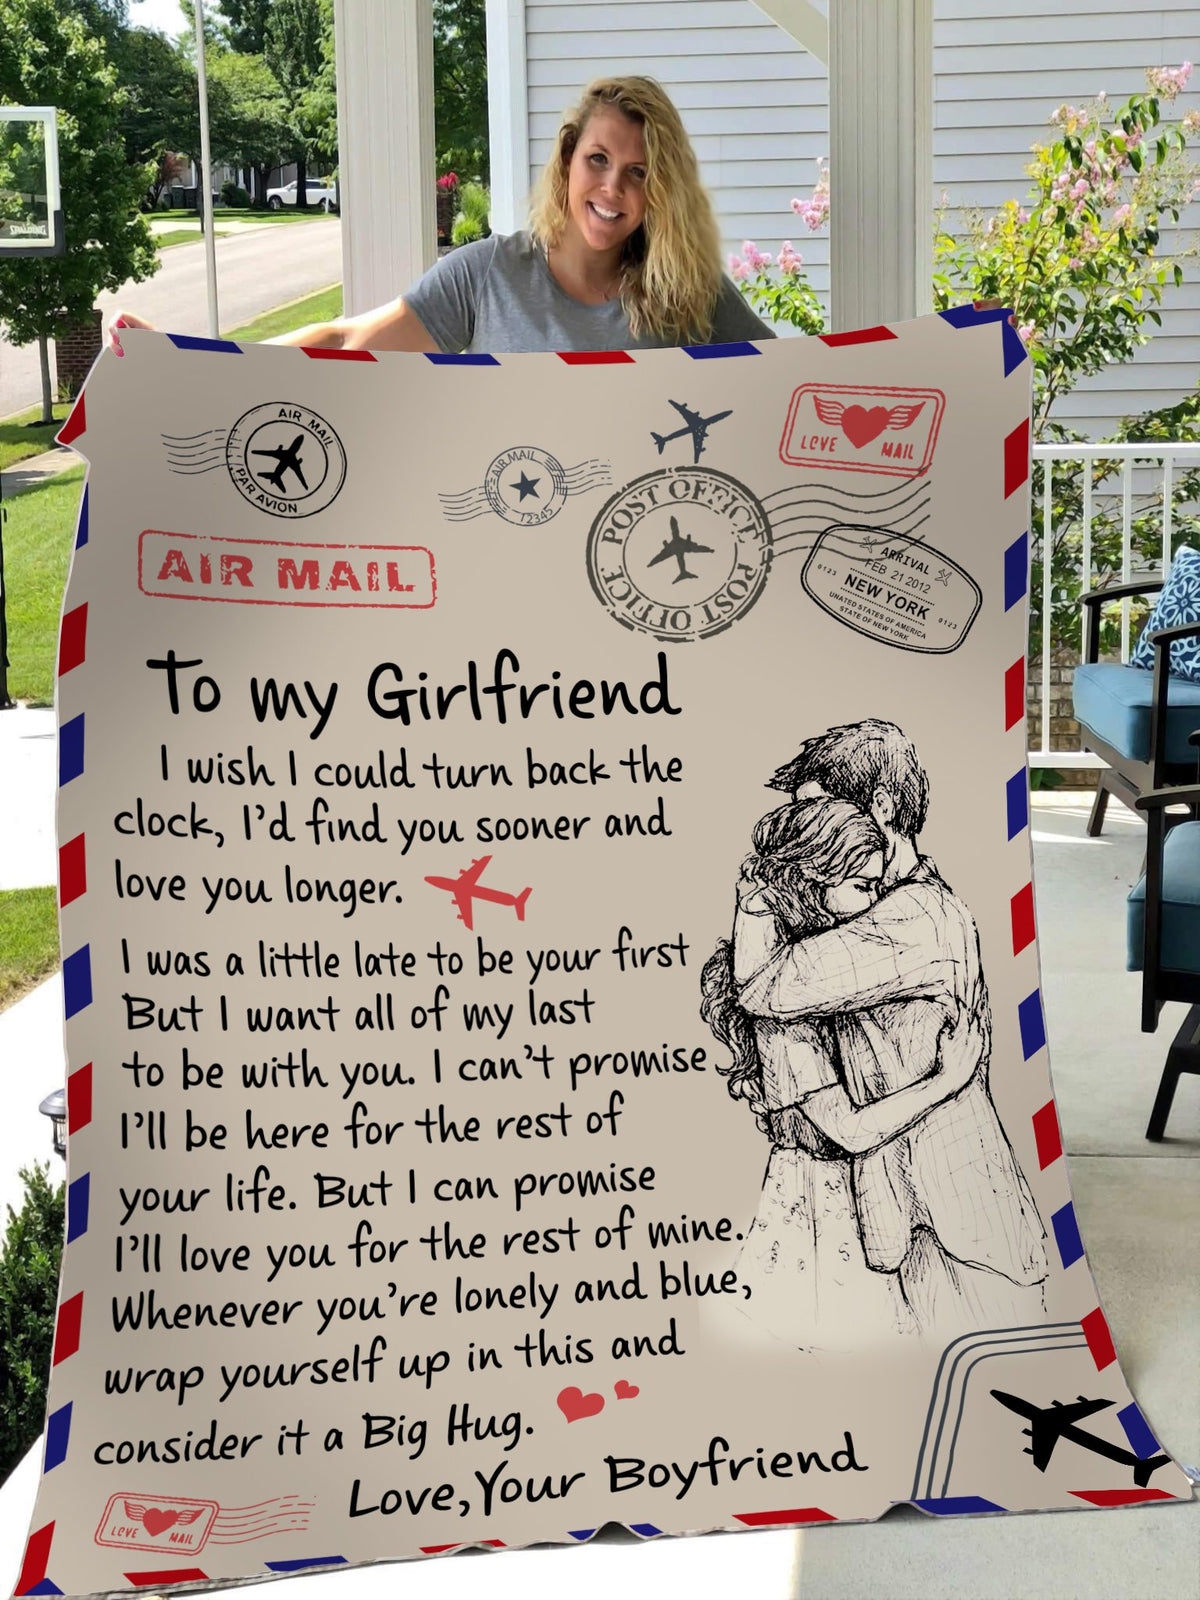 SPALDING
AIR MAIL
PAR AVION
AIR MAIL
12345
POST OFFICE
POST OFFICE
LOVE MAIL
AIR MAIL
ARRIVAL
FEB 21 2012
0123 NEW YORK 0123
UNITED STATES OF AMERICA
STATE OF NEW YORK
To my Girlfriend
I wish I could turn back the
clock, I'd find you sooner and
love you longer.
I was a little late to be your first
But I want all of my last
to be with you. I can't promise
I'll be here for the rest of
your life. But I can promise
I'll love you for the rest of mine.
Whenever you're lonely and blue,
wrap yourself up in this and
consider it a Big Hug.
Love, Your Boyfriend
LOVE MAIL